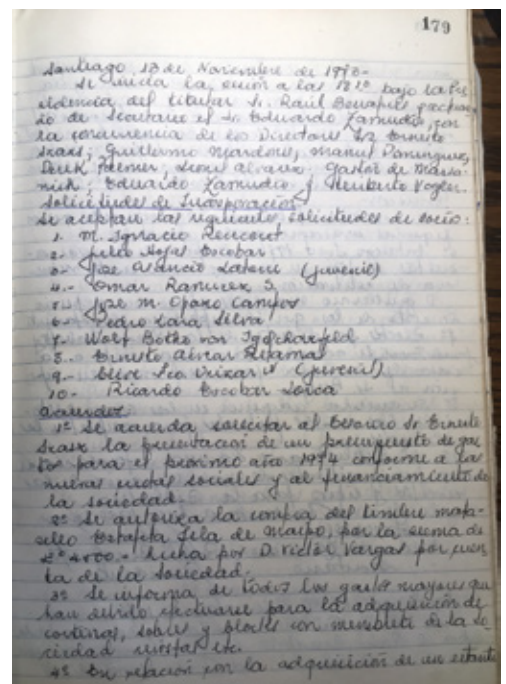 179
Santiago 13 de Noviembre de 1973-
Se inicia la sesión a las bajo la Pre
sidencia del titular Sr. Raúl
de Secretario el Sr. Eduardo Zamudio, con
la concurrencia de los Directores Sr. Ernesto
Guillermo Manuel Dominguez,
Alvarez, Gastón de
Eduardo Zamudio y Heriberto Vogler.
Solicitudes de Incorporación
Se aceptan las siguientes solicitudes de socio:
1- M. Ignacio
2- Rojas Escobar
3- José Asencio (juvenil)
4.- Omar Ramirez S.
5- José M. Campos
6- Pedro Lara Silva
7- Wolf von
8- Ernesto
9- (juvenil)
10- Ricardo Escobar Lorca
Acuerdos
1º Se acuerda solicitar al tesorero Sr. Ernesto
la presentación de un presupuesto de gas
tos para el próximo año 1974 conforme a las
nuevas cuotas sociales y al financiamiento de
la sociedad.
2º Se autoriza la compra del timbre mata-
sellos Estafeta Isla de Maipo, por la suma de
hecha por D. Victor Vargas por cuen
ta de la sociedad.
3º Se informa de todos los gastos mayores que
han debido efectuarse para la adquisición de
cortinas, sobres y blocks con membrete de la so
ciedad etc.
4º En relación con la adquisición de un estante